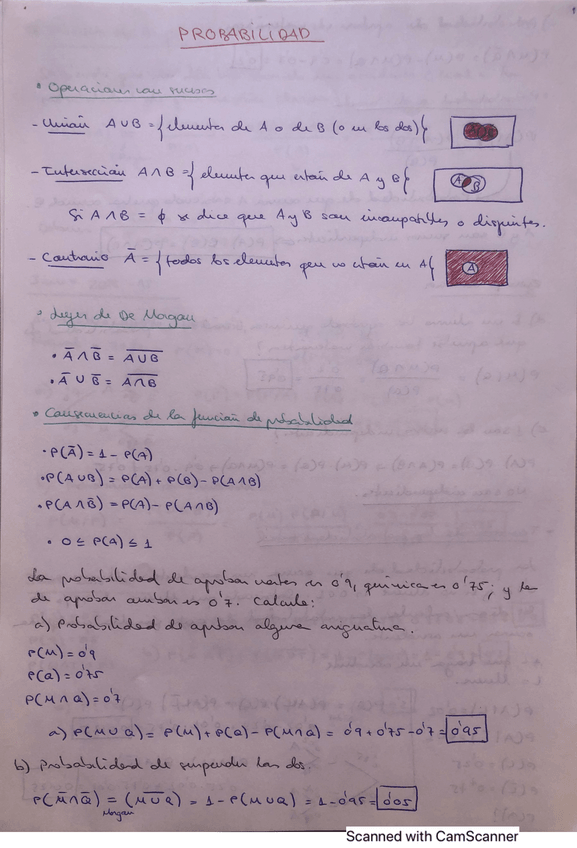 PROBABILIDAD
• Operaciones con sucesos
- Unión A∪B = {elementos de A o de B (o en los dos)}
- Intersección A∩B = {elementos que están de A y B}
A B
Si A∩B = ϕ se dice que A y B son incompatibles o disjuntos.
- Contrario A = {todos los elementos que no están en A}
A
• Leyes de De Morgan
• A̅ ∩ B̅ = \overline{A∪B}
• A̅ ∪ B̅ = \overline{A∩B}
• Consecuencias de la función de probabilidad
• P(A̅) = 1 - P(A)
• P(A∪B) = P(A) + P(B) - P(A∩B)
• P(A∩B̅) = P(A) - P(A∩B)
• 0 ≤ P(A) ≤ 1
La probabilidad de aprobar mates es 0'9, química es 0'75; y la
de aprobar ambas es 0'7. Calcula:
a) Probabilidad de aprobar alguna asignatura.
P(M) = 0'9
P(Q) = 0'75
P(M∩Q) = 0'7
a) P(M∪Q) = P(M) + P(Q) - P(M∩Q) = 0'9 + 0'75 - 0'7 = 0'95
b) Probabilidad de suspender las dos.
P(M̅∩Q̅) = (\overline{M∪Q}) = 1 - P(M∪Q) = 1 - 0'95 = 0'05
Morgan
Scanned with CamScanner